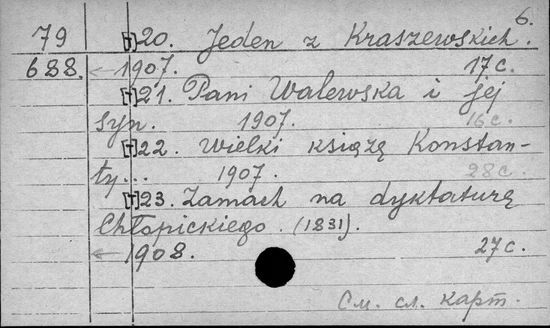 6.
79 [+]20. Jeden z Kraszewskich.
688. ← 1907. 17 с.
[+]21. Pani Walewska i jej
syn. 1907. 16 с.
[+]22. Wielki książę Konstan-
ty... 1907. 28 с.
[+]23. Zamach na dyktaturę
Chłopickiego. (1831).
← 1908. 27 с.
См. сл. карт.